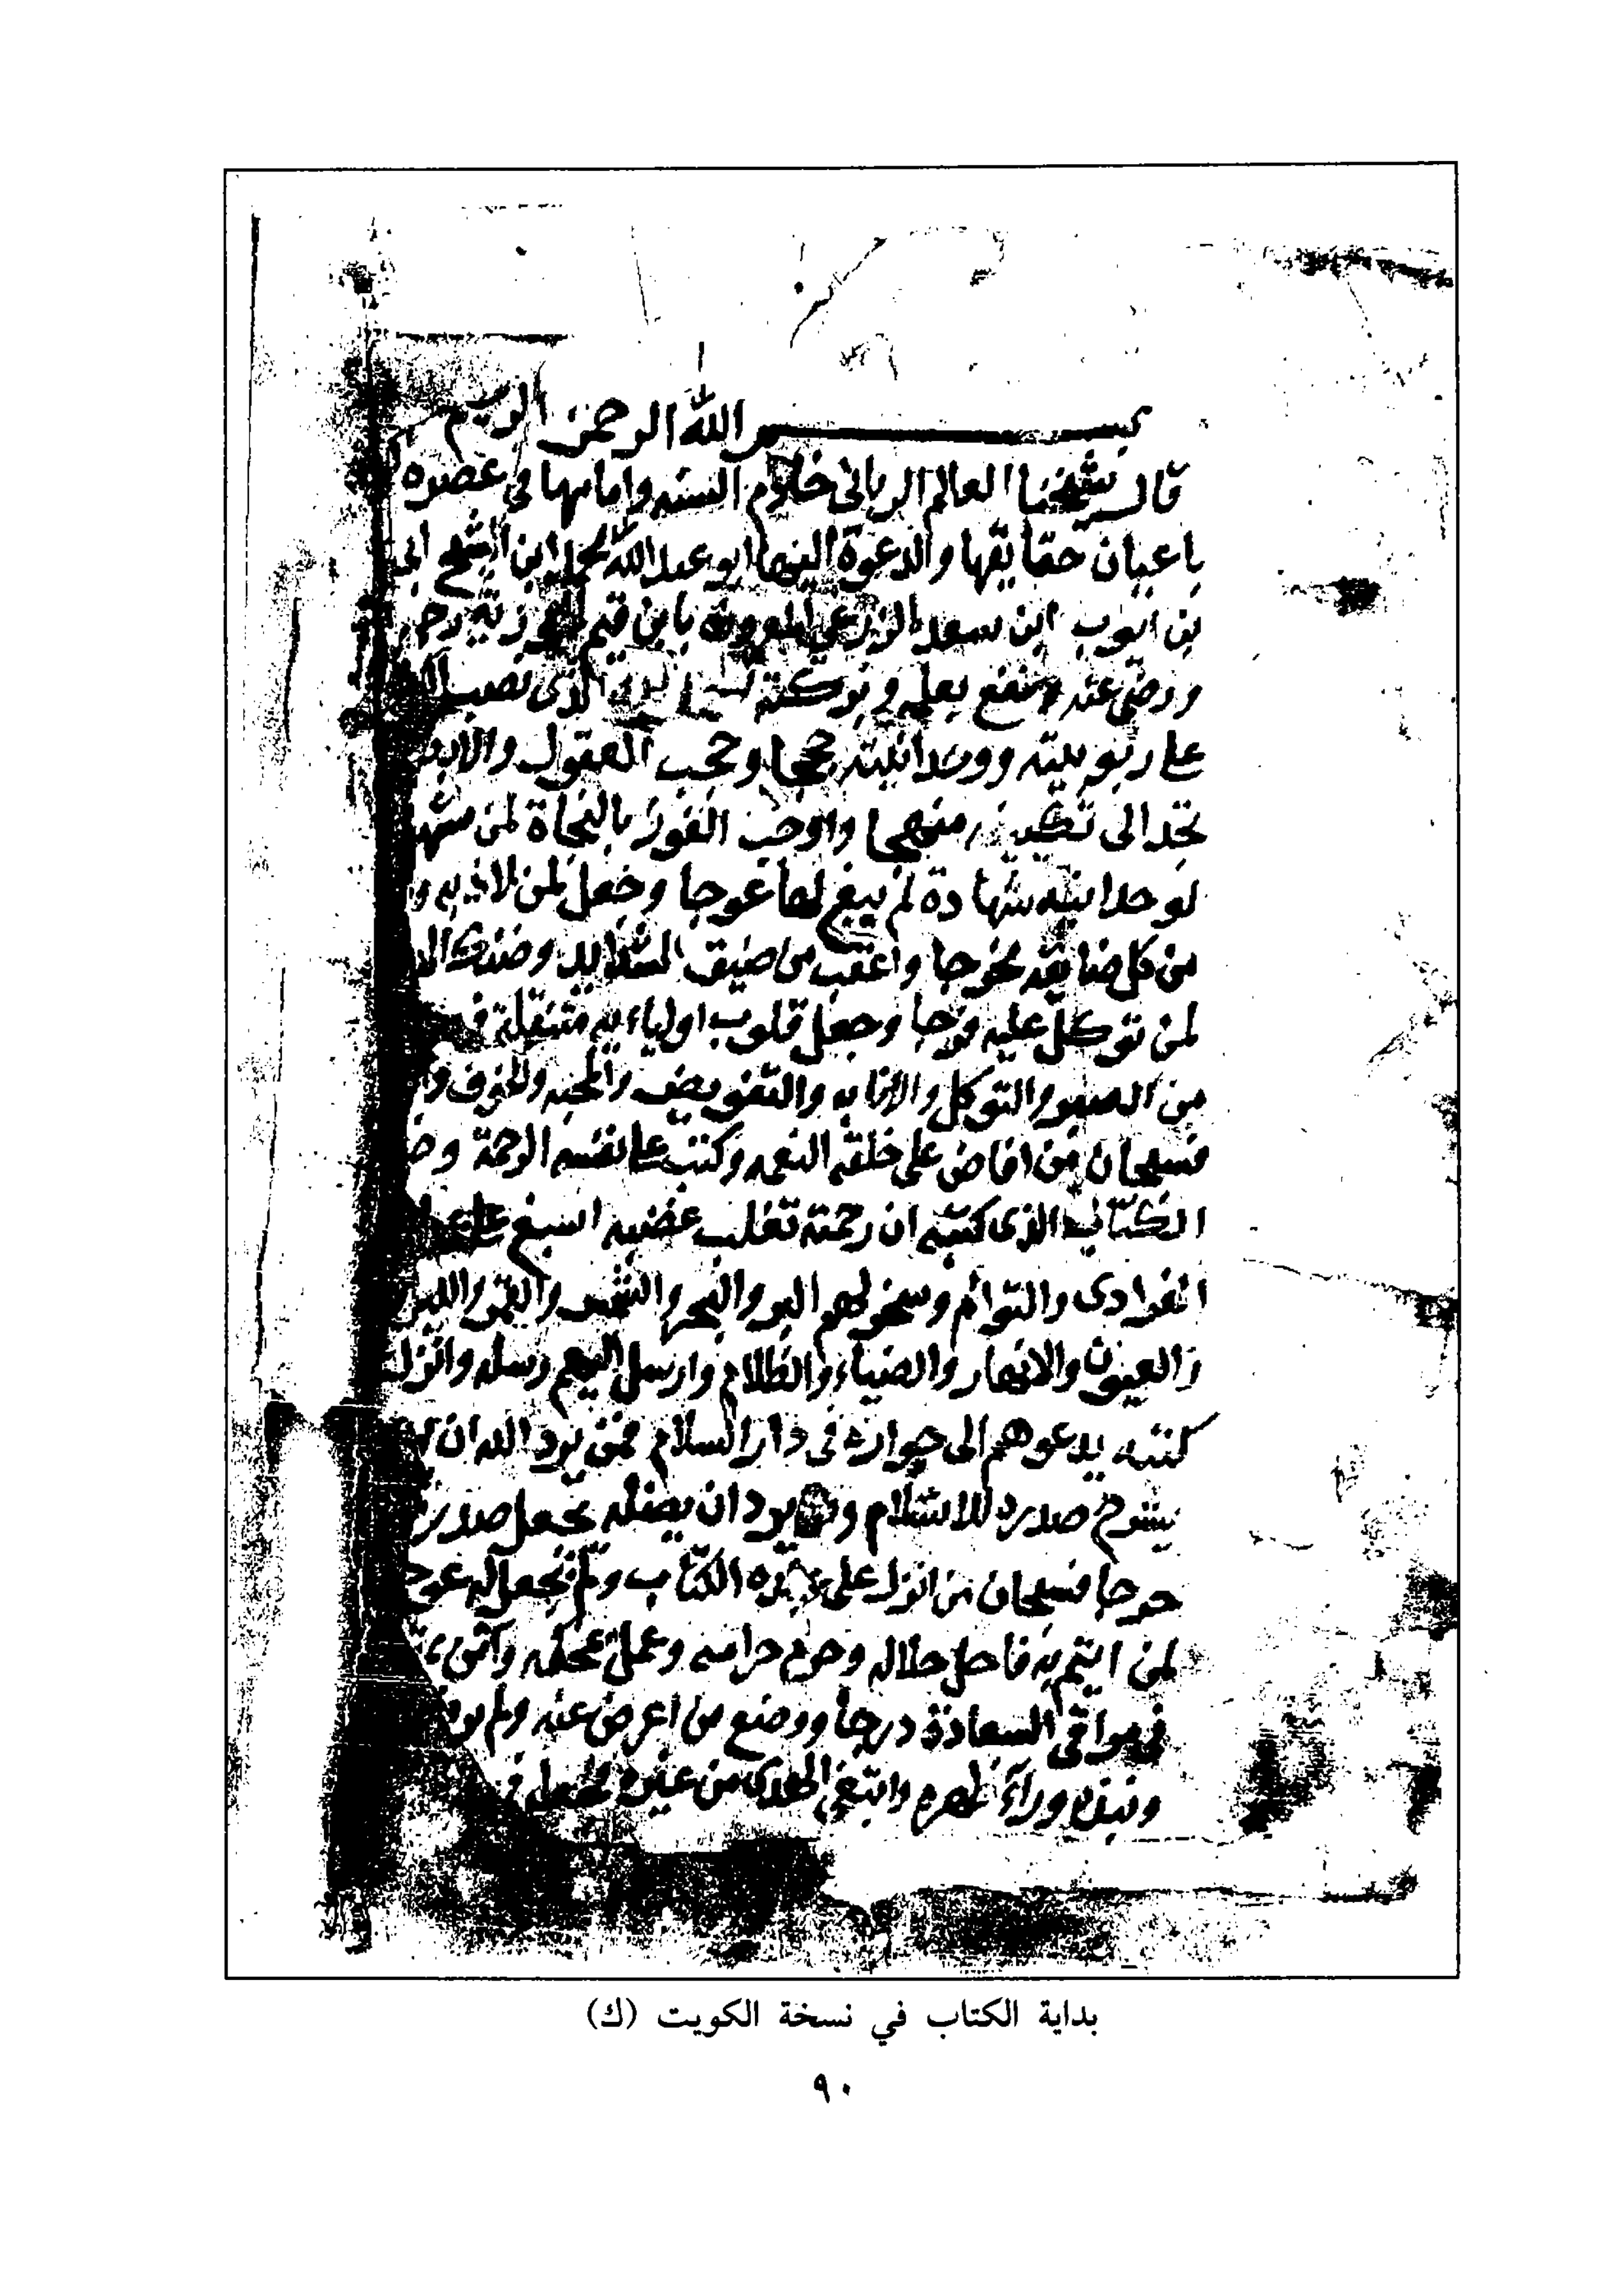 بسم الله الرحمن الرحيم
قال شيخنا العالم الرباني خادم السنه وامامها في عصره
باعيان حقايقها والدعوة اليها ابو عبد الله محمد ابن الشيخ ابي
بن ايوب ابن سعد الزرعي المعروف بابن قيم الجوزية رحمه
ورضي عنه ونفع بعلمه وبركته الذي نصب
على ربوبيته ووحدانيته حججا وحجب العقول والابصار
تجد الى منهجا واوجب الفوز بالنجاة لمن شهد
لوحدانيته شهادة لم يبغ لها عوجا وجعل لمن لاذ به و
من كل ضايقه مخرجا واعقب من ضيق الشدايد وضنك
لمن توكل عليه فرجا وجعل قلوب اولياءيه متنقلة في
من الصبر والتوكل والانابه والتفويض والمحبه والخوف
فسبحان من افاض على خلقه النعمه وكتب على نفسه الرحمة و
الكتاب الذي كتبه ان رحمته تغلب غضبه اسبغ على
الفرادى والتوام وسخر لهم البر والبحر والشمس والقمر والليل
والعيون والانهار والضياء والظلام وارسل اليهم رسله وانزل
كتبه يدعوهم الى جواره في دار السلام فمن يرد الله ان
يشرح صدره للاسلام ومن يرد ان يضله يجعل صدره
حرجا فسبحان من انزل على عبده الكتاب ولم يجعل له عوجا
لمن ايتم به فاحل حلاله وحرم حرامه وعمل بمحكمه
في مراقي السعادة درجا ووضع من اعرض عنه ولم
ونبذه وراء ظهره وابتغى الهدى من غيره فجعله في
بداية الكتاب في نسخة الكويت (ك)
٩٠